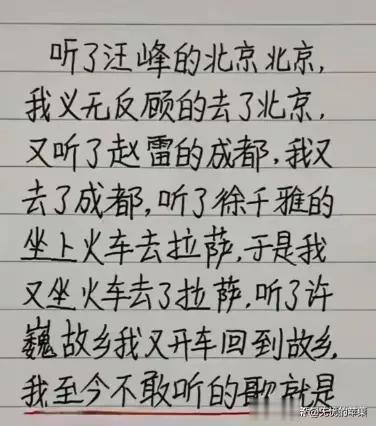 听了汪峰的北京北京,
我义无反顾的去了北京,
又听了赵雷的成都,我又
去了成都,听了徐千雅的
坐上火车去拉萨,于是我
又坐火车去了拉萨,听了许
巍故乡我又开车回到故乡,
我至今不敢听的歌就是